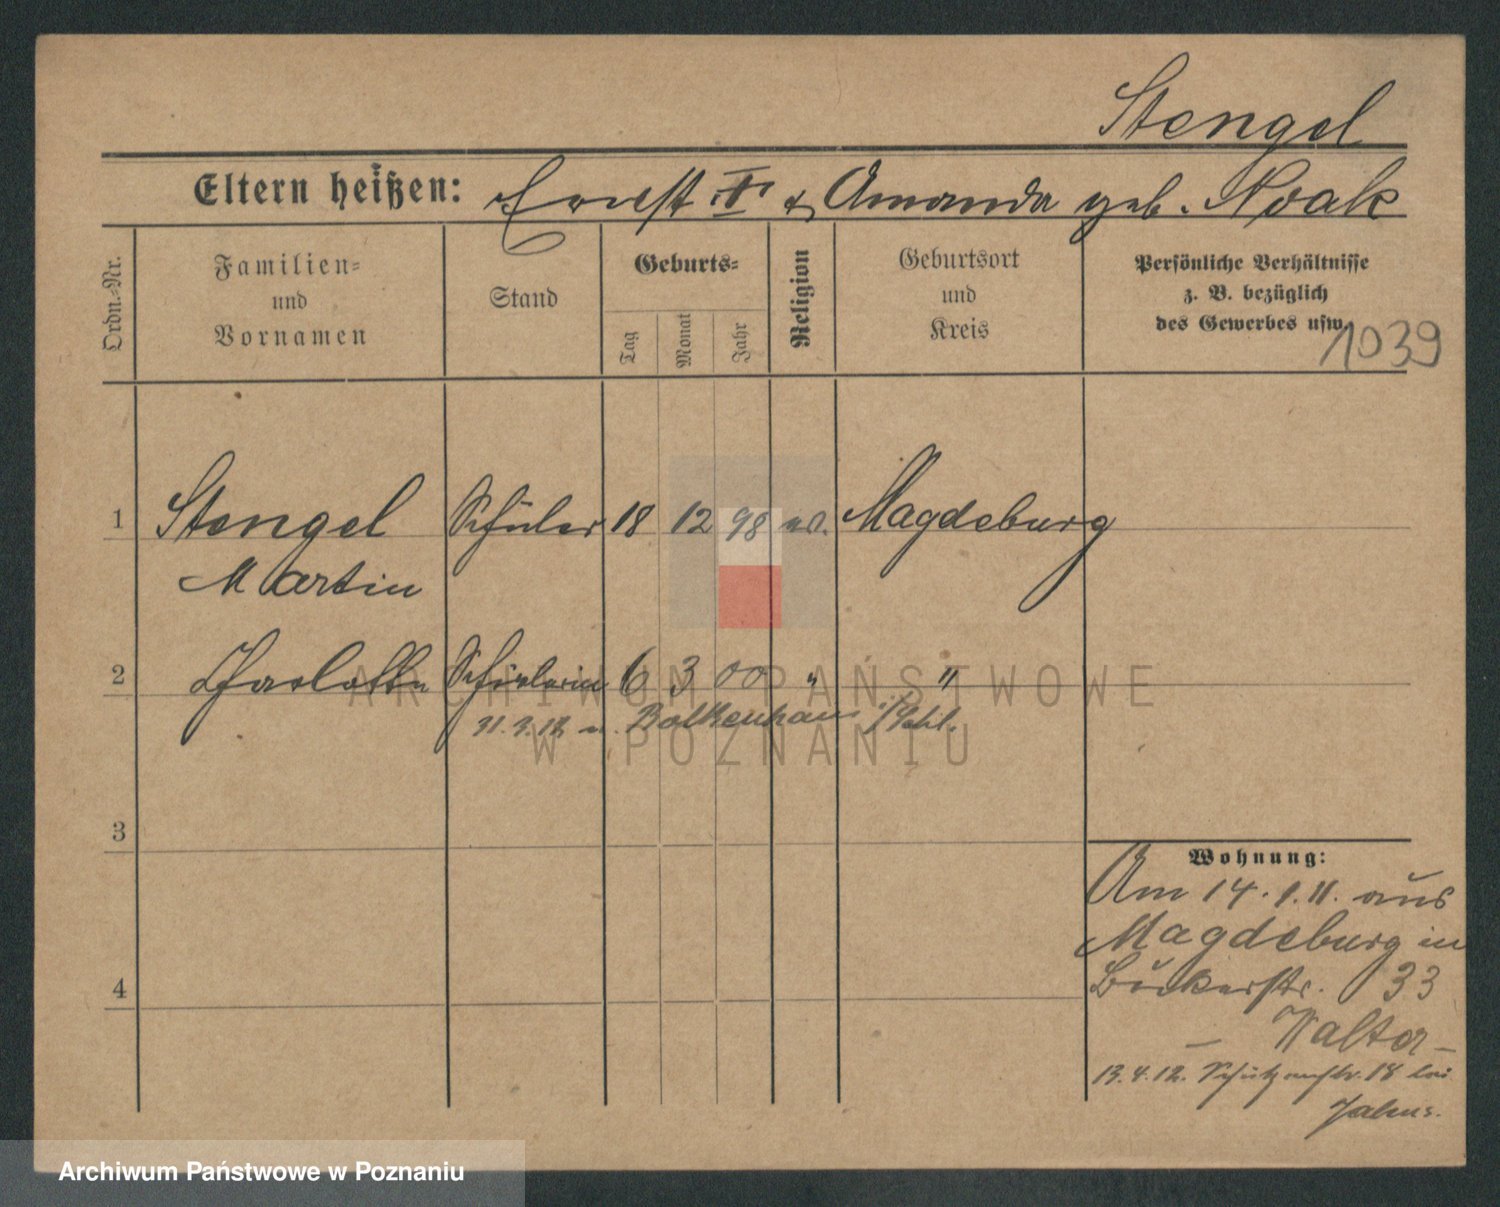 Stengel
Eltern heißen: Ernst † & Amanda geb. Noak
Ordn.-Nr.
Familien- und Vornamen
Stand
Geburts-
Tag
Monat
Jahr
Religion
Geburtsort und Kreis
Persönliche Verhältnisse
z. B. bezüglich
des Gewerbes usw.
1039
1 Stengel Schüler 18 12 98 ev. Magdeburg
Martin
2 Charlotte Schülerin 6 3 00 " "
31.3.12 n. Bolkenhain i/Schl.
3
4
Wohnung:
Am 14.1.11. aus
Magdeburg in
Bäckerstr. 33
Walter
13.4.12. Schützenstr. 18 bei
ARCHIWUM PAŃSTWOWE
W POZNANIU
Archiwum Państwowe w Poznaniu